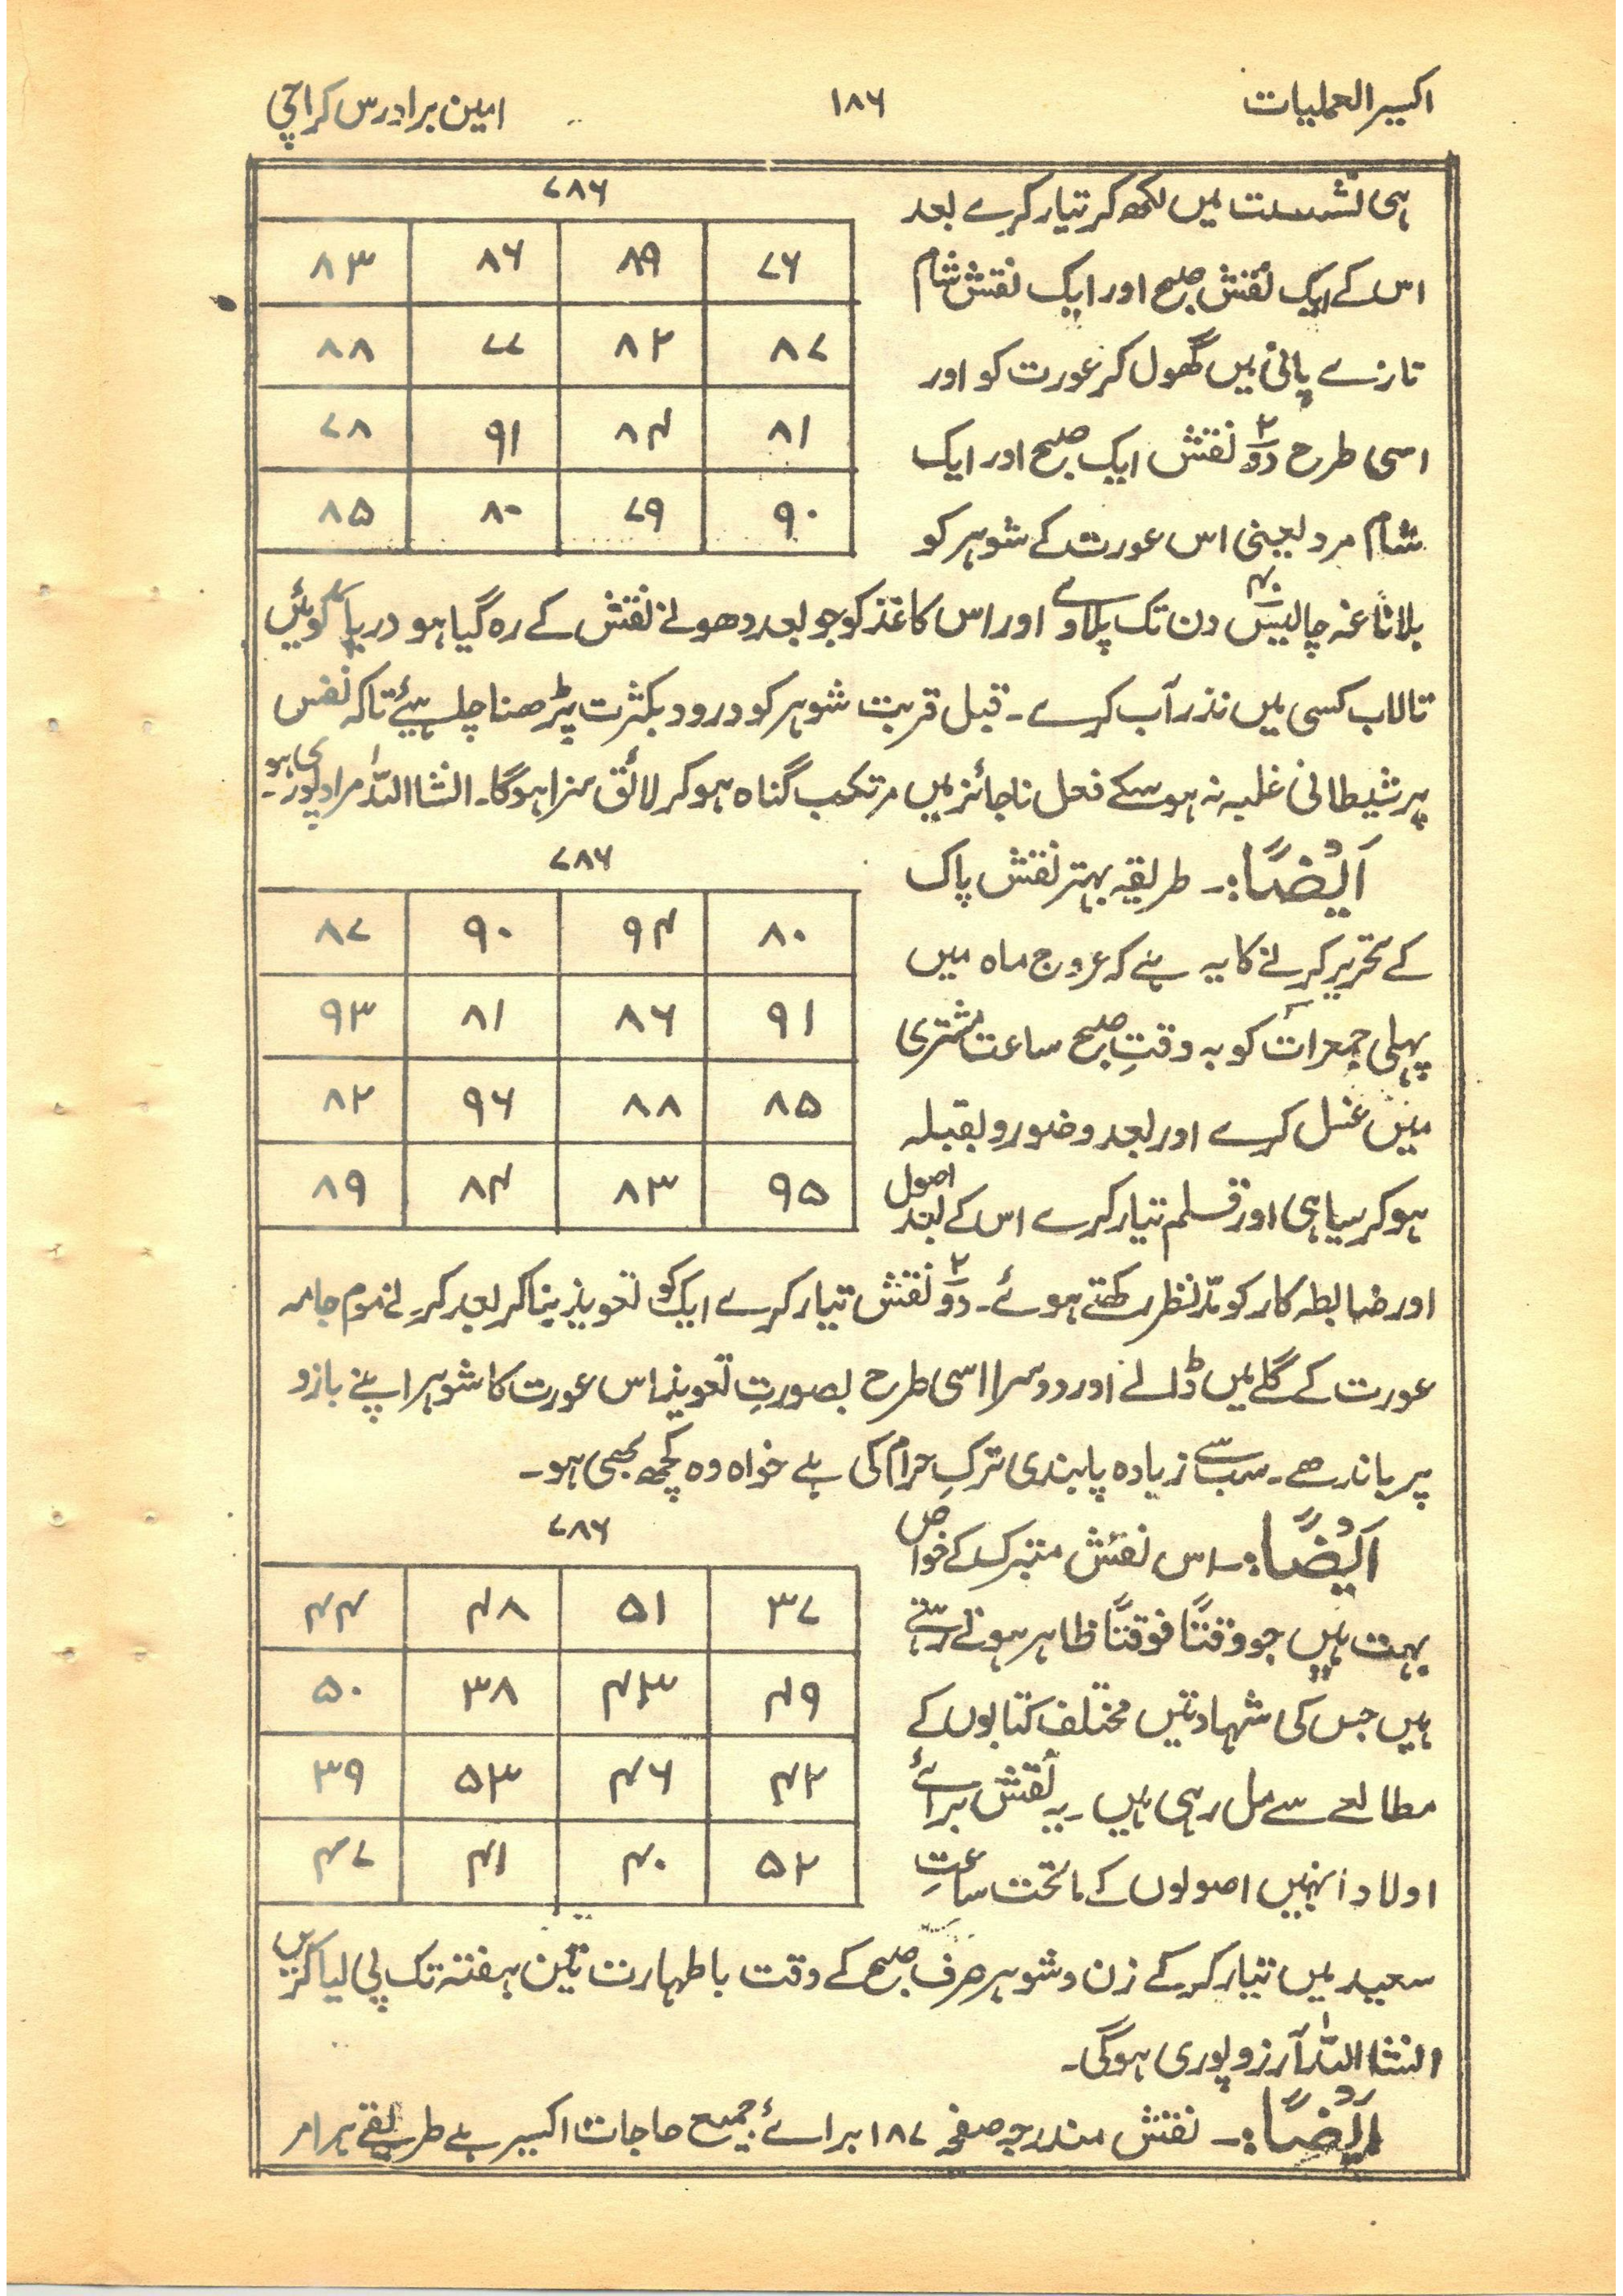 اکسیر العملیات ۱۸۶ امین برادرس کراچی
ہی نشست میں لکھ کر تیار کرے بعد
اس کے ایک نقش صبح اور ایک نقش شام
تازے پانی میں گھول کر عورت کو اور
اسی طرح دو۲ نقش ایک صبح اور ایک
شام مرد یعنی اس عورت کے شوہر کو
۷۸۶
۸۳ ۸۶ ۸۹ ۷۶
۸۸ ۷۷ ۸۲ ۸۷
۷۸ ۹۱ ۸۴ ۸۱
۸۵ ۸۰ ۷۹ ۹۰
بلا ناغہ چالیس۴۰ دن تک پلاوے اور اس کاغذ کو جو بعد دھونے نقش کے رہ گیا ہو دریا کوئیں
تالاب کسی میں نذر آب کرے۔ قبل قربت شوہر کو درود بکثرت پڑھنا چاہیئے تاکہ نفس
پر شیطانی غلبہ نہ ہو سکے فعل ناجائز میں مرتکب گناہ ہو کر لائق سزا ہوگا۔ انشا اللہ مراد پوری ہو۔
اَیْضًا:۔ طریقہ بہتر نقش پاک
کے تحریر کرنے کا یہ ہے کہ عروج ماہ میں
پہلی جمعرات کو بہ وقتِ صبح ساعت مشتری
میں غسل کرے اور بعد وضو رو بقبلہ
ہو کر سیاہی اور قلم تیار کرے اس کے بعد اصول
۷۸۶
۸۷ ۹۰ ۹۴ ۸۰
۹۳ ۸۱ ۸۶ ۹۱
۸۲ ۹۶ ۸۸ ۸۵
۸۹ ۸۴ ۸۳ ۹۵
اور ضابطہ کار کو مدّ نظر رکھتے ہوئے۔ دو۲ نقش تیار کرے ایک کو تعویذ بنا کر بعد کرنے موم جامہ
عورت کے گلے میں ڈالے اور دوسرا اسی طرح بصورتِ تعویذ اس عورت کا شوہر اپنے بازو
پر باندھے۔ سب سے زیادہ پابندی ترکِ حرام کی ہے خواہ وہ کچھ بھی ہو۔
اَیْضًا:۔ اس نقش متبرک کے خواص
بہت ہیں جو وقتًا فوقتًا ظاہر ہوتے رہتے
ہیں جس کی شہادتیں مختلف کتابوں کے
مطالعے سے مل رہی ہیں۔ یہ نقش برائے
اولاد انہیں اصولوں کے ماتحت ساعتِ
۷۸۶
۴۴ ۴۸ ۵۱ ۳۷
۵۰ ۳۸ ۴۳ ۴۹
۳۹ ۵۳ ۴۶ ۴۲
۴۷ ۴۱ ۴۰ ۵۲
سعید میں تیار کر کے زن و شوہر صرف صبح کے وقت با طہارت تین ہفتہ تک پی لیا کریں
انشا اللہ آرزو پوری ہوگی۔
اَیْضًا:۔ نقش مندرجہ صفحہ ۱۸۷ برائے جمیع حاجات اکسیر ہے طریقے ہر امر